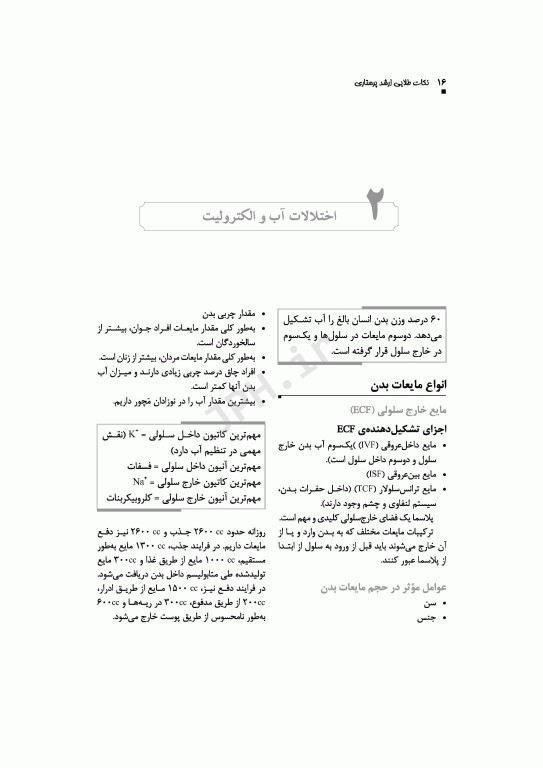 ۱۶ نکات طلایی ارشد پرستاری
۲
اختلالات آب و الکترولیت
۶۰ درصد وزن بدن انسان بالغ را آب تشکیل
می‌دهد. دوسوم مایعات در سلول‌ها و یک‌سوم
در خارج سلول قرار گرفته است.
انواع مایعات بدن
مایع خارج سلولی (ECF)
اجزای تشکیل‌دهنده‌ی ECF
• مایع داخل‌عروقی (IVF) (یک‌سوم آب بدن خارج
سلول و دوسوم داخل سلول است).
• مایع بین‌عروقی (ISF)
• مایع ترانس‌سلولار (TCF) (داخل حفرات بدن،
سیستم لنفاوی و چشم وجود دارند).
پلاسما یک فضای خارج‌سلولی کلیدی و مهم است.
ترکیبات مایعات مختلف که به بدن وارد و یا از
آن خارج می‌شوند باید قبل از ورود به سلول از ابتدا
از پلاسما عبور کنند.
عوامل مؤثر در حجم مایعات بدن
• سن
• جنس
• مقدار چربی بدن
• به‌طور کلی مقدار مایعات افراد جوان، بیشتر از
سالخوردگان است.
• به‌طور کلی مقدار مایعات مردان، بیشتر از زنان است.
• افراد چاق درصد چربی زیادی دارند و میزان آب
بدن آنها کمتر است.
• بیشترین مقدار آب را در نوزادان مَچور داریم.
مهم‌ترین کاتیون داخل سلولی = K+ (نقش
مهمی در تنظیم آب دارد)
مهم‌ترین آنیون داخل سلولی = فسفات
مهم‌ترین کاتیون خارج سلولی = Na+
مهم‌ترین آنیون خارج سلولی = کلروبیکربنات
روزانه حدود ۲۶۰۰ cc جذب و ۲۶۰۰ cc نیز دفع
مایعات داریم. در فرایند جذب، ۱۳۰۰ cc مایع به‌طور
مستقیم، ۱۰۰۰ cc مایع از طریق غذا و ۳۰۰cc مایع
تولیدشده طی متابولیسم داخل بدن دریافت می‌شود.
در فرایند دفع نیز، ۱۵۰۰ cc مایع از طریق ادرار،
۲۰۰cc از طریق مدفوع، ۳۰۰cc در ریه‌ها و ۶۰۰cc
به‌طور نامحسوس از طریق پوست خارج می‌شود.
JPH.ir